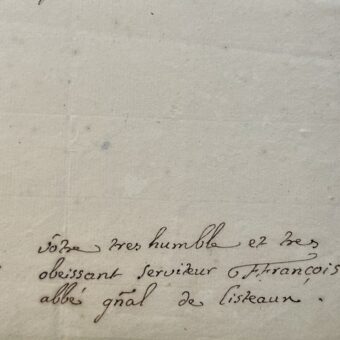 vôtre tres humble et tres
obeissant serviteur f François
abbé gñal de Cisteaux .